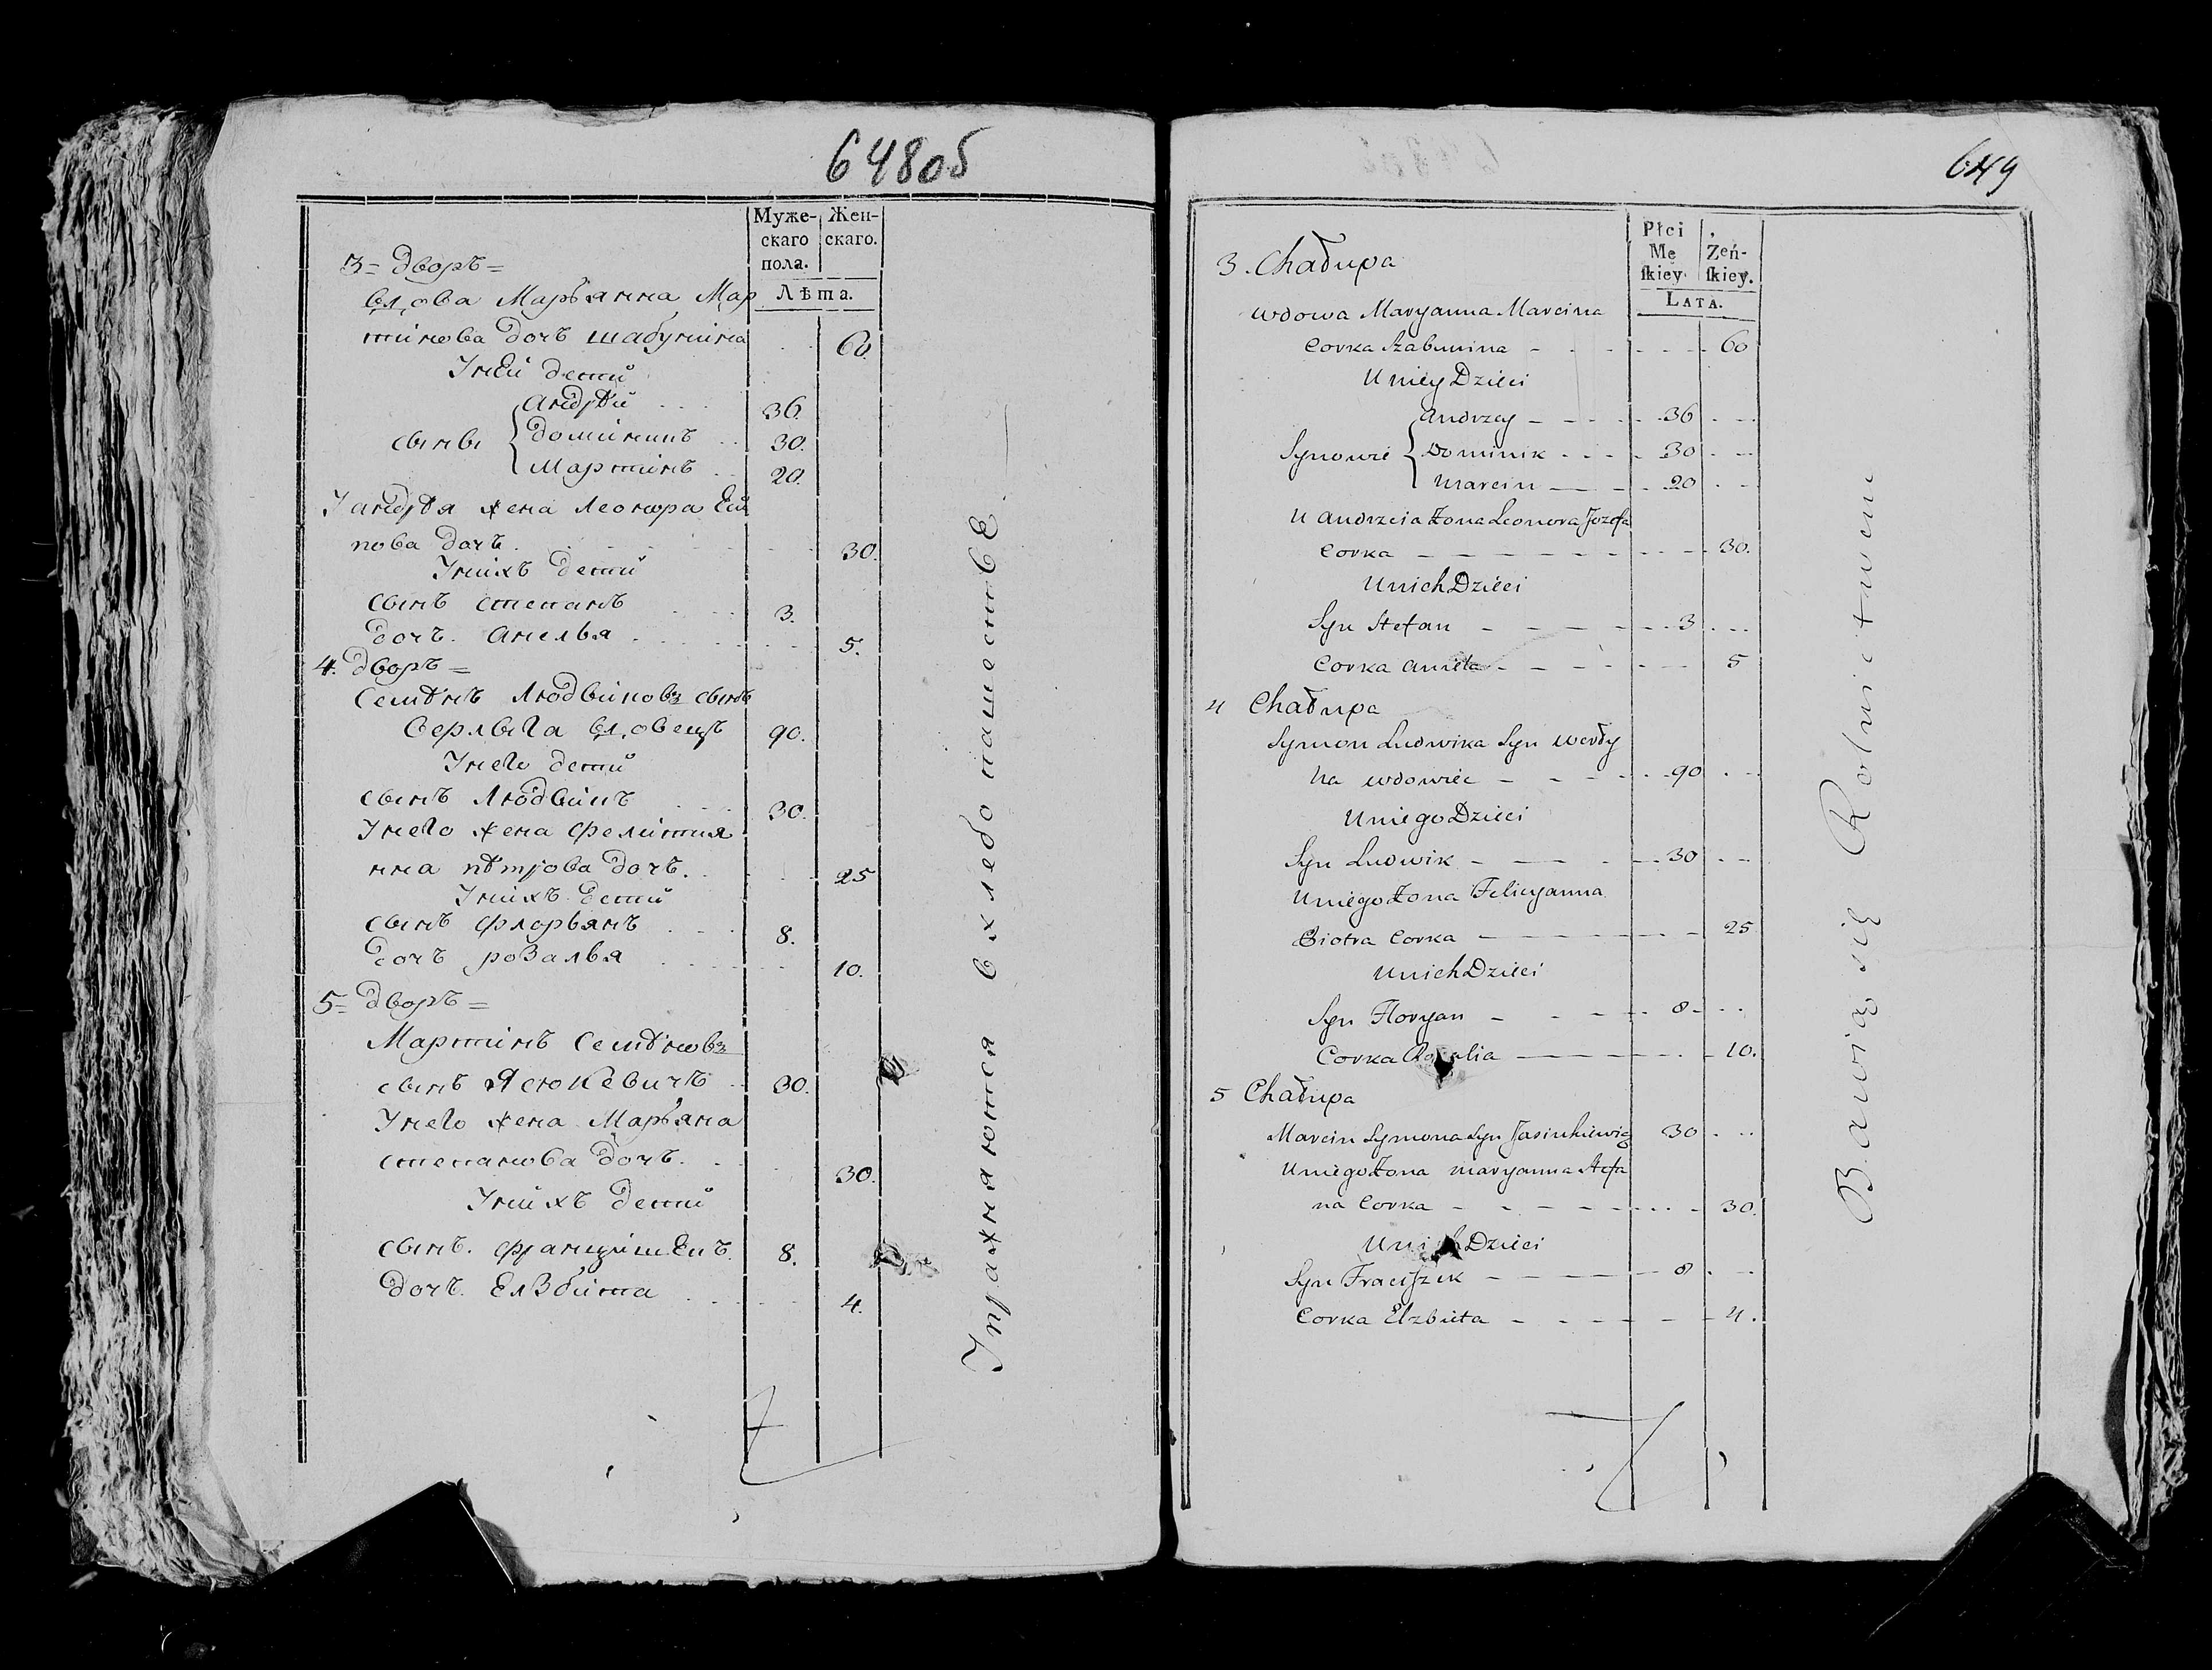 648об
Муже-
скаго
пола.
Жен-
скаго.
Лѣта.
3= дворъ=
вдова Марьянна Мар
тинова дочъ шабунина 60.
Унеи дети
Андрѣй 36.
сынвi Доминикъ 30.
Мартинъ 20.
У андрѣя жена Леонора Еси
пова дочъ. 30.
Унихъ дети
сынъ степанъ 3.
дочъ. анелья 5.
4. дворъ=
Семѣнъ Людвиковъ сынъ
Верлыга вдовецъ 90.
Унего дети
сынъ Людвикъ 30.
Унего жена фелиция
нна пѣтрова дочъ. 25
Унихъ дети
сынъ флорьянъ 8.
дочъ розалья 10.
5= дворъ=
Мартинъ Семѣновъ
сынъ Ясюкевичъ 30.
Унего жена Марьяна
степанова дочъ. 30.
Унихъ дети
сынъ. францишекъ 8.
дочъ. Елзбита 4.
Упражняются в хлебопашестве
649
Płci
Mę
ſkiey.
Żeń-
ſkiey.
LATA.
3. Chałupa
wdowa Maryanna Marcina
Corka Szabunina 60
U niey Dzieci
Andrzey 36
Synowie Dominik 30
Marcin 20
U Andrzeia Żona Leonora Jozefa
Corka 30.
U nich Dzieci
Syn Stefan 3
Corka Aniela 5
4 Chałupa
Symon Ludwika Syn Werdy
ha wdowiec 90
U niego Dzieci
Syn Ludwik 30
U niego Żona Felicyanna
Piotra Corka 25
U nich Dzieci
Syn Floryan 8
Corka Rozalia 10.
5 Chałupa
Marcin Symona Syn Jasiukiewicz 30
U niego Żona Maryanna Stefa
na Corka 30.
U nich Dzieci
Syn Fraciſzek 8
Corka Elzbieta 4.
Bawią się Rolnictwem